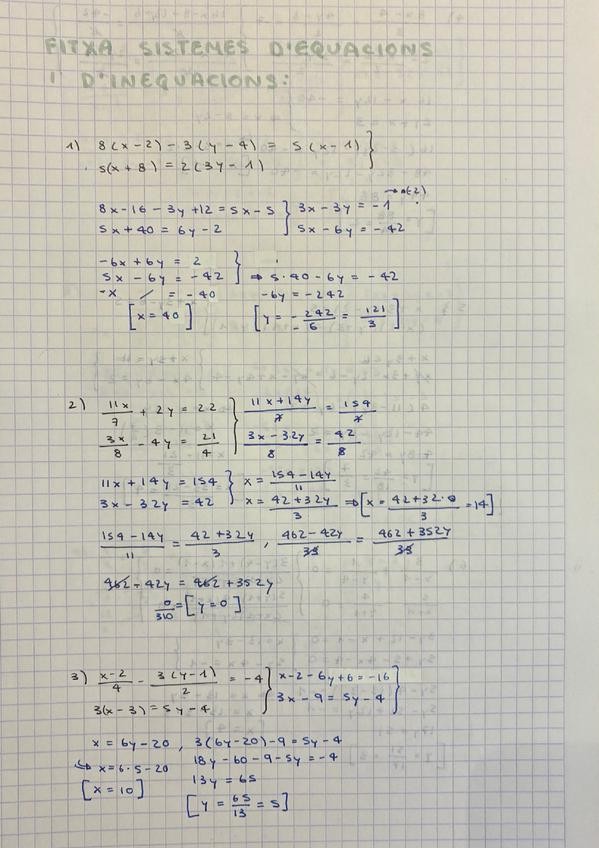 FITXA SISTEMES D'EQUACIONS
I D'INEQUACIONS:
1) 8(x-2) - 3(y-4) = 5(x-1) }
5(x+8) = 2(3y-1)
8x-16-3y+12 = 5x-5 } 3x-3y = -1 →·(-2)
5x+40 = 6y-2 5x-6y = -42
-6x+6y = 2 }
5x-6y = -42 ⇒ 5·40-6y = -42
-x / = -40 -6y = -242
[x=40] [y = -242/-6 = 121/3]
2) 11x/7 + 2y = 22 } 11x+14y/7 = 154/7
3x/8 - 4y = 21/4 3x-32y/8 = 42/8
11x+14y = 154 } x = 154-14y/11
3x-32y = 42 x = 42+32y/3 ⇒ [x = 42+32·0/3 = 14]
154-14y/11 = 42+32y/3 , 462-42y/33 = 462+352y/33
462-42y = 462+352y
0/310 = [y=0]
3) x-2/4 - 3(y-1)/2 = -4 } x-2-6y+6 = -16 }
3(x-3) = 5y-4 3x-9 = 5y-4
x = 6y-20 , 3(6y-20)-9 = 5y-4
↳ x = 6·5-20 18y-60-9-5y = -4
[x=10] 13y = 65
[y = 65/13 = 5]